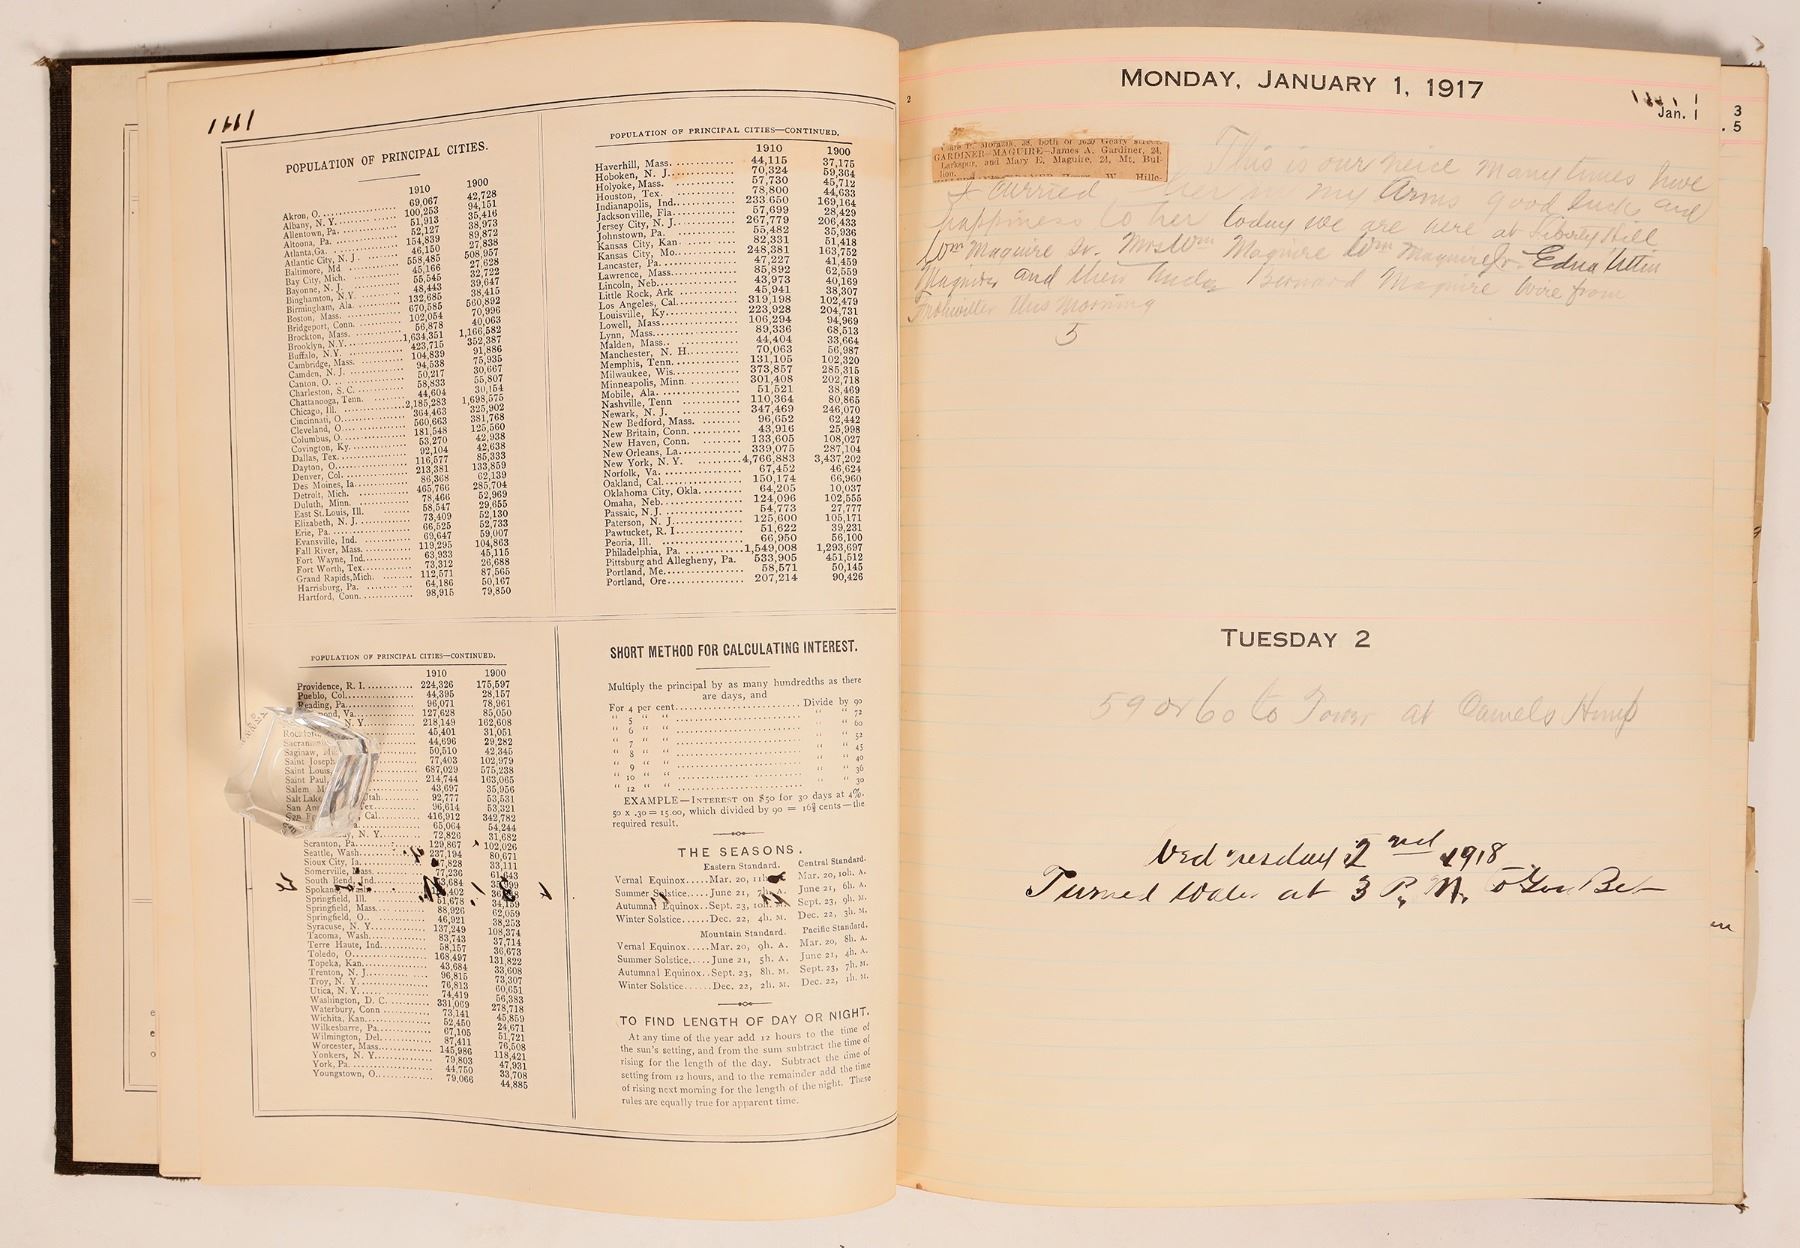 POPULATION OF PRINCIPAL CITIES.
1910 1900
Akron, O. 69,067 42,728
Albany, N. Y. 100,253 94,151
Allentown, Pa. 51,913 35,416
Altoona, Pa. 52,127 38,973
Atlanta, Ga. 154,839 89,872
Atlantic City, N. J. 46,150 27,838
Baltimore, Md 558,485 508,957
Bay City, Mich. 45,166 27,628
Bayonne, N. J. 55,545 32,722
Binghamton, N.Y. 48,443 39,647
Birmingham, Ala 132,685 38,415
Boston, Mass. 670,585 560,892
Bridgeport, Conn. 102,054 70,996
Brockton, Mass. 56,878 40,063
Brooklyn, N.Y. 1,634,351 1,166,582
Buffalo, N.Y. 423,715 352,387
Cambridge, Mass. 104,839 91,886
Camden, N. J. 94,538 75,935
Canton, O. 50,217 30,667
Charleston, S. C. 58,833 55,807
Chattanooga, Tenn. 44,604 30,154
Chicago, Ill. 2,185,283 1,698,575
Cincinnati, O. 364,463 325,902
Cleveland, O. 560,663 381,768
Columbus, O. 181,548 125,560
Covington, Ky. 53,270 42,938
Dallas, Tex. 92,104 42,638
Dayton, O. 116,577 85,333
Denver, Col. 213,381 133,859
Des Moines, Ia. 86,368 62,139
Detroit, Mich. 465,766 285,704
Duluth, Minn. 78,466 52,969
East St. Louis, Ill. 58,547 29,655
Elizabeth, N. J. 73,409 52,130
Erie, Pa. 66,525 52,733
Evansville, Ind. 69,647 59,007
Fall River, Mass. 119,295 104,863
Fort Wayne, Ind. 63,933 45,115
Fort Worth, Tex. 73,312 26,688
Grand Rapids, Mich. 112,571 87,565
Harrisburg, Pa. 64,186 50,167
Hartford, Conn. 98,915 79,850
POPULATION OF PRINCIPAL CITIES—CONTINUED.
1910 1900
Haverhill, Mass. 44,115 37,175
Hoboken, N. J. 70,324 59,364
Holyoke, Mass. 57,730 45,712
Houston, Tex. 78,800 44,633
Indianapolis, Ind. 233,650 169,164
Jacksonville, Fla. 57,699 28,429
Jersey City, N. J. 267,779 206,433
Johnstown, Pa. 55,482 35,936
Kansas City, Kan. 82,331 51,418
Kansas City, Mo. 248,381 163,752
Lancaster, Pa. 47,227 41,459
Lawrence, Mass. 85,892 62,559
Lincoln, Neb. 43,973 40,169
Little Rock, Ark 45,941 38,307
Los Angeles, Cal. 319,198 102,479
Louisville, Ky. 223,928 204,731
Lowell, Mass. 106,294 94,969
Lynn, Mass. 89,336 68,513
Malden, Mass. 44,404 33,664
Manchester, N. H. 70,063 56,987
Memphis, Tenn. 131,105 102,320
Milwaukee, Wis. 373,857 285,315
Minneapolis, Minn. 301,408 202,718
Mobile, Ala. 51,521 38,469
Nashville, Tenn 110,364 80,865
Newark, N. J. 347,469 246,070
New Bedford, Mass. 96,652 62,442
New Britain, Conn. 43,916 25,998
New Haven, Conn. 133,605 108,027
New Orleans, La. 339,075 287,104
New York, N. Y. 4,766,883 3,437,202
Norfolk, Va. 67,452 46,624
Oakland, Cal. 150,174 66,960
Oklahoma City, Okla. 64,205 10,037
Omaha, Neb. 124,096 102,555
Passaic, N. J. 54,773 27,777
Paterson, N. J. 125,600 105,171
Pawtucket, R. I. 51,622 39,231
Peoria, Ill. 66,950 56,100
Philadelphia, Pa. 1,549,008 1,293,697
Pittsburg and Allegheny, Pa. 533,905 451,512
Portland, Me. 58,571 50,145
Portland, Ore. 207,214 90,426
POPULATION OF PRINCIPAL CITIES—CONTINUED.
1910 1900
Providence, R. I. 224,326 175,597
Pueblo, Col. 44,395 28,157
Reading, Pa. 96,071 78,961
Va. 127,628 85,050
N. Y. 218,149 162,608
45,401 31,051
44,696 29,282
Saginaw, 50,510 42,345
Saint Joseph 77,403 102,979
Saint Louis, 687,029 575,238
Saint Paul, 214,744 163,065
Salem 43,697 35,956
Salt Lake Utah 92,777 53,531
San 96,614 53,321
San Cal. 416,912 342,782
65,064 54,244
N. Y. 72,826 31,682
Scranton, Pa. 129,867 102,026
Seattle, Wash. 237,194 80,671
Sioux City, Ia. 47,828 33,111
Somerville, Mass. 77,236 61,643
South Bend, Ind.
Spokane
Springfield, Ill. 51,678 34,159
Springfield, Mass. 88,926 62,059
Springfield, O. 46,921 38,253
Syracuse, N. Y. 137,249 108,374
Tacoma, Wash. 83,743 37,714
Terre Haute, Ind. 58,157 36,673
Toledo, O. 168,497 131,822
Topeka, Kan. 43,684 33,608
Trenton, N. J. 96,815 73,307
Troy, N. Y. 76,813 60,651
Utica, N. Y. 74,419 56,383
Washington, D. C. 331,069 278,718
Waterbury, Conn 73,141 45,859
Wichita, Kan. 52,450 24,671
Wilkesbarre, Pa. 67,105 51,721
Wilmington, Del. 87,411 76,508
Worcester, Mass. 145,986 118,421
Yonkers, N. Y. 79,803 47,931
York, Pa. 44,750 33,708
Youngstown, O. 79,066 44,885
SHORT METHOD FOR CALCULATING INTEREST.
Multiply the principal by as many hundredths as there
are days, and
For 4 per cent. Divide by 90
" 5 " " " " 72
" 6 " " " " 60
" 7 " " " " 52
" 8 " " " " 45
" 9 " " " " 40
" 10 " " " " 36
" 12 " " " " 30
EXAMPLE—INTEREST on $50 for 30 days at 4%.
50 x .30 = 15.00, which divided by 90 = 16⅔ cents—the
required result.
THE SEASONS.
Eastern Standard. Central Standard.
Vernal Equinox.....Mar. 20, 11h. Mar. 20, 10h. A.
Summer Solstice....June 21, 7h. A. June 21, 6h. A.
Autumnal Equinox..Sept. 23, 10h. M. Sept. 23, 9h. M.
Winter Solstice.....Dec. 22, 4h. M. Dec. 22, 3h. M.
Mountain Standard. Pacific Standard.
Vernal Equinox.....Mar. 20, 9h. A. Mar. 20, 8h. A.
Summer Solstice....June 21, 5h. A. June 21, 4h. A.
Autumnal Equinox..Sept. 23, 8h. M. Sept. 23, 7h. M.
Winter Solstice......Dec. 22, 2h. M. Dec. 22, 1h. M.
TO FIND LENGTH OF DAY OR NIGHT.
At any time of the year add 12 hours to the time of
the sun's setting, and from the sum subtract the time of
rising for the length of the day. Subtract the time of
setting from 12 hours, and to the remainder add the time
of rising next morning for the length of the night. These
rules are equally true for apparent time.
2
MONDAY, JANUARY 1, 1917
Jan. 1
3
. 5
28, both of 1620 Geary street.
GARDINER—MAGUIRE—James A. Gardiner, 24,
Larkspur, and Mary E. Maguire, 24, Mt. Bul-
lion.
This is our neice many times have
I carried her in my Arms good luck and
happiness to her today we are here at Liberty Hill
Wm Maguire Sr. Mrs Wm Maguire Wm Maguire Jr. Edna
Maguire and their Uncle Bernard Maguire Wire from
this morning
5
TUESDAY 2
59 or 60 to Tower at Camels Hump
Wednesday 2nd 1918
Turned Water at 3 P. M.